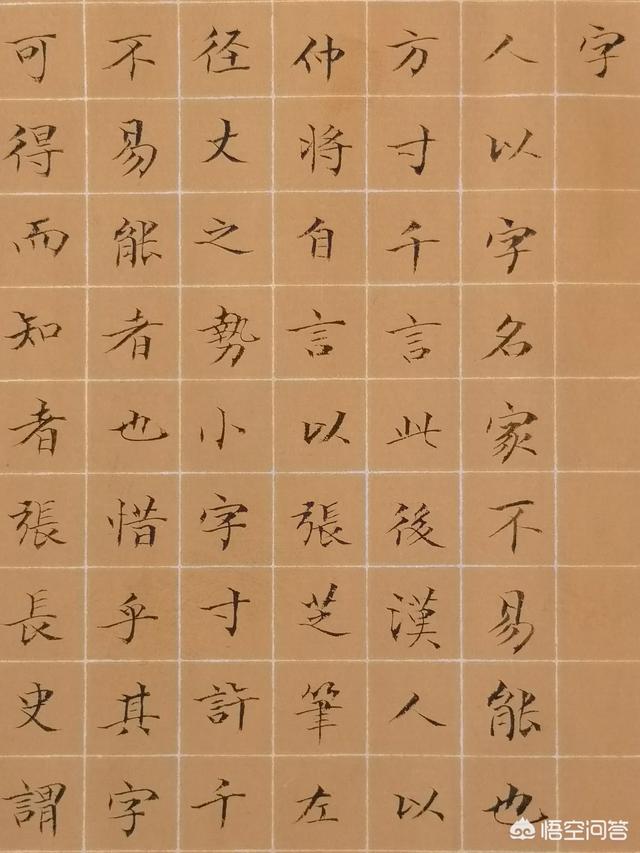 字
人以字名家不易能也
方寸千言此後漢人以
仲将自言以張芝筆左
径丈之勢小字寸許千
不易能者也惜乎其字
可得而知者張長史謂
悟空问答